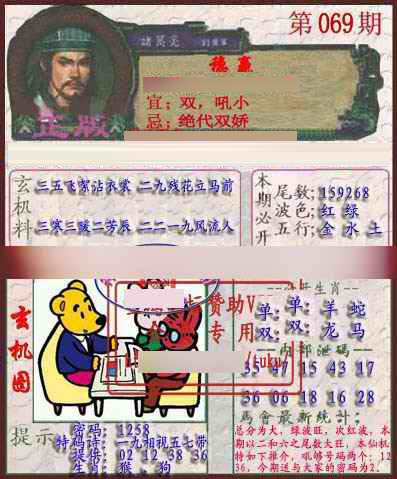 第069期
諸葛亮
稳赢
宜：双，吼小
忌：绝代双娇
正版
玄机料
三五飞絮沾衣裳 二九残花立马前
三寒三暖二芳辰 二二一九风流人
本期必开
尾数：159268
波色：红 绿
五行：金 水 土
开生肖
单：单：羊 蛇
双：双：龙 马
赞助V
专用
/tuku
内部泄码
35 47 15 43 17
36 06 18 16 28
玄机图
提示
密码：1258
特码诗：一九相视五七带
提供：02 12 38 36
生肖：猴，狗
馬會最新統計：
总分为大，绿波旺，次红波，本
期以二和六之尾数大旺，本仙机
特如下推介，吼够号码两个：12
36，今期送与大家的密码为2．